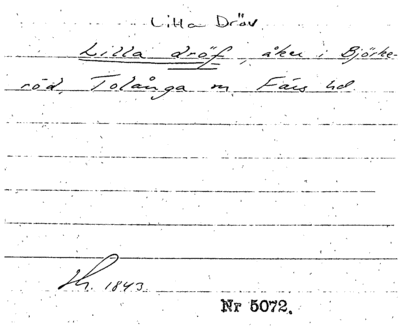 Lilla Dröv
Lilla dröf, åker i Björke-
röd, Tolånga sn Färs hd.
1843.
Nr 5072.